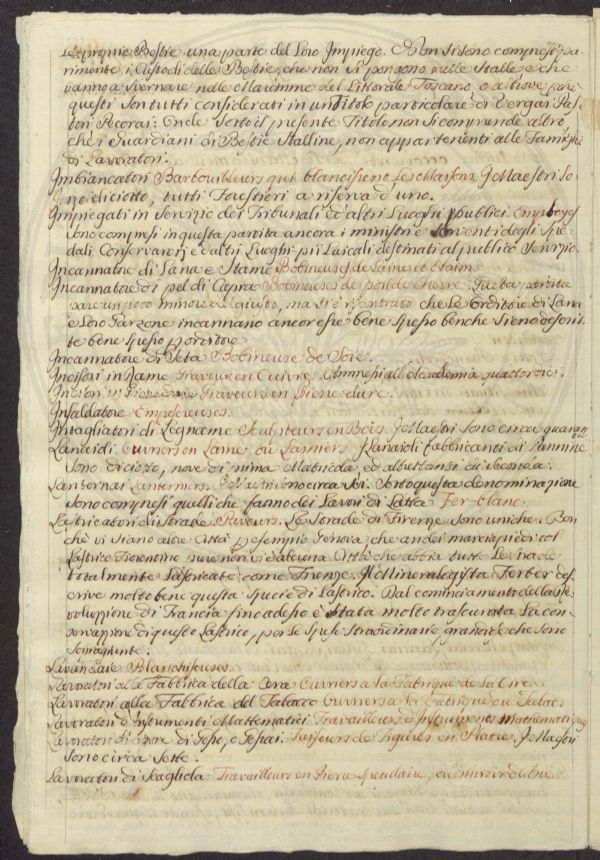 le proprie Bestie una parte del loro Impiego. Non si sono compresi pa-
rimente i Custodi delle Bestie, che non si pongono nelle Stalle e che
vanno a svernare nelle Maremme del Littorale Toscano, o altrove, per
questi son tutti considerati in un Titolo particolare di Vergai Pas-
tori Pecorai: Onde sotto il presente Titolo non si comprende altro
che i Guardiani di Bestie Stalline, non appartenenti alle Famiglie
di Lavoratori.
Imbiancatori Barbouilleurs qui blanchissent les Maisons. I Maestri so-
no diciotto, tutti Forestieri a riserva d'uno.
Impiegati in servizio dei Tribunali ed altri Luoghi pubblici. Employes
sono compresi in questa partita ancora i ministri e serventi degli Spe-
dali Conservatorj ed altri Luoghi pii Laicali destinati al pubblico servizio.
Incannatore di Lana e Stame Bobineuses de Laine et Etaim.
Incannatore di pel di Capra Bobineuses de poil de Chevre. partita
pare un poco minore del giusto, ma si è riscontrato che le Orditore di Lana
e loro Garzone incannano ancor esse bene spesso benche sieno descrit-
te bene spesso per orditore
Incannatore di Seta Bobineuse de Soie.
Incisori in Rame Graveur en Cuivre. Ammessi all'Accademia quattordici.
Incisori in Pietre dure Graveurs en pierre dure.
Insaldatore Empeseuses.
Intagliatori di Legname Sculpteurs en Bois. I Maestri sono circa quaranta
Lanaioli Ouvriers en Laine, ou Lainiers. I Lanaioli fabbricanti di Pannine
sono diciotto, nove di prima Matricola, ed altrettanti di seconda.
Lanternai Lanterniers. I Maestri sono circa sei. Sotto questa denominazione
sono compresi quelli che fanno dei Lavori di Latta Fer blanc.
Lastricatori di Strade. Paveurs. Le Strade di Firenze sono uniche. Ben-
chè vi siano altre Città per esempio Genova, che ha dei marciapiedi col
Lastrico Fiorentino pure non vi è alcuna Città che abbia tutte le strade
totalmente Lastricate come Firenze. Il Mineralogista Ferber des-
crive molto bene questa specie di Lastrico. Dal cominciamento della Re-
voluzione di Francia fino adesso è stata molto trascurata la con-
servazione di questo Lastrico, per le spese straordinarie grandiose che sono
sopraggiunte.
Lavandaie Blanchisseuses.
Lavoratori alla Fabbrica della Cera Ouvriers a la Fabrique de la Cire
Lavoratori alla Fabbrica del Tabacco Ouvriers a la Fabrique du Tabac.
Lavoratori d'Instrumenti Mattematici Travailleurs d'Instruments mathematiques
Lavoratori di figure di Gesso, e Gessai. Faiseurs de Figures en Platre. I Maestri
sono circa sette.
Lavoratori di Scagliola Travailleurs en Pierre speculaire, ou